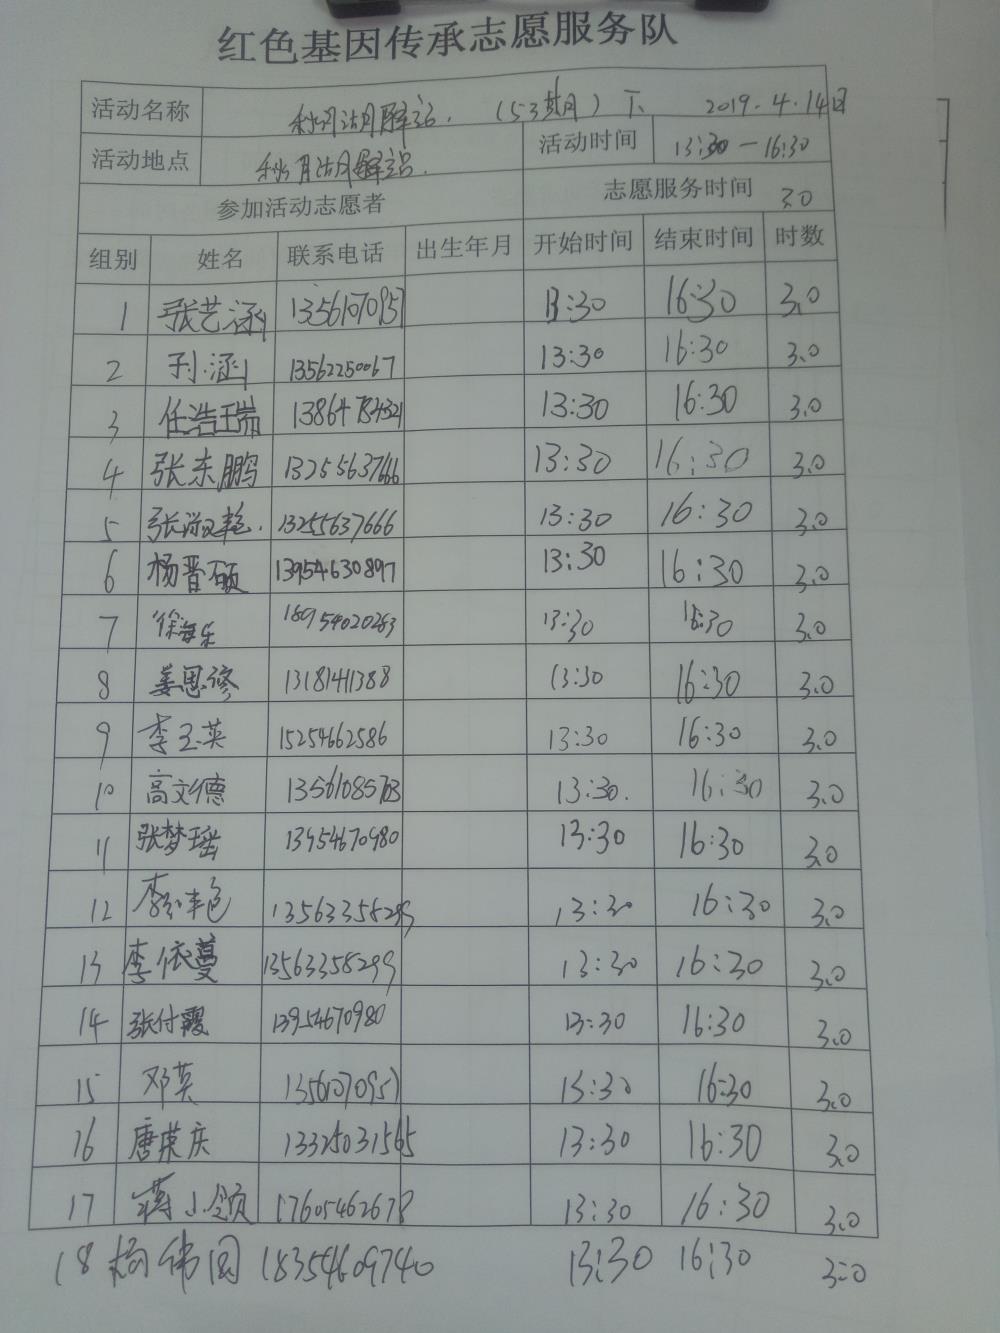 红色基因传承志愿服务队
活动名称 秋月湖驿站. （53期）下 2019.4.14日
活动地点 秋月湖驿站. 活动时间 13:30—16:30
参加活动志愿者 志愿服务时间 3.0
组别 姓名 联系电话 出生年月 开始时间 结束时间 时数
1 张艺涵 13561070951 13:30 16:30 3.0
2 孙涵 13562250067 13:30 16:30 3.0
3 任浩瑞 13864784321 13:30 16:30 3.0
4 张东鹏 13255637666 13:30 16:30 3.0
5 张艳. 13255637666 13:30 16:30 3.0
6 杨晋硕 13954630897 13:30 16:30 3.0
7 徐乐 18954020283 13:30 16:30 3.0
8 姜思修 13181411388 13:30 16:30 3.0
9 李玉英 15254662586 13:30 16:30 3.0
10 高文德 13561085703 13:30. 16:30 3.0
11 张梦瑶 13954670980 13:30 16:30 3.0
12 李艳 13563358299 13:30 16:30 3.0
13 李依蔓 13563358299 13:30 16:30 3.0
14 张付霞 13954670980 13:30 16:30 3.0
15 邓英 13561070951 13:30 16:30 3.0
16 唐荣庆 13325031565 13:30 16:30 3.0
17 蒋小领 17605462678 13:30 16:30 3.0
18 杨伟园 18354609740 13:30 16:30 3.0